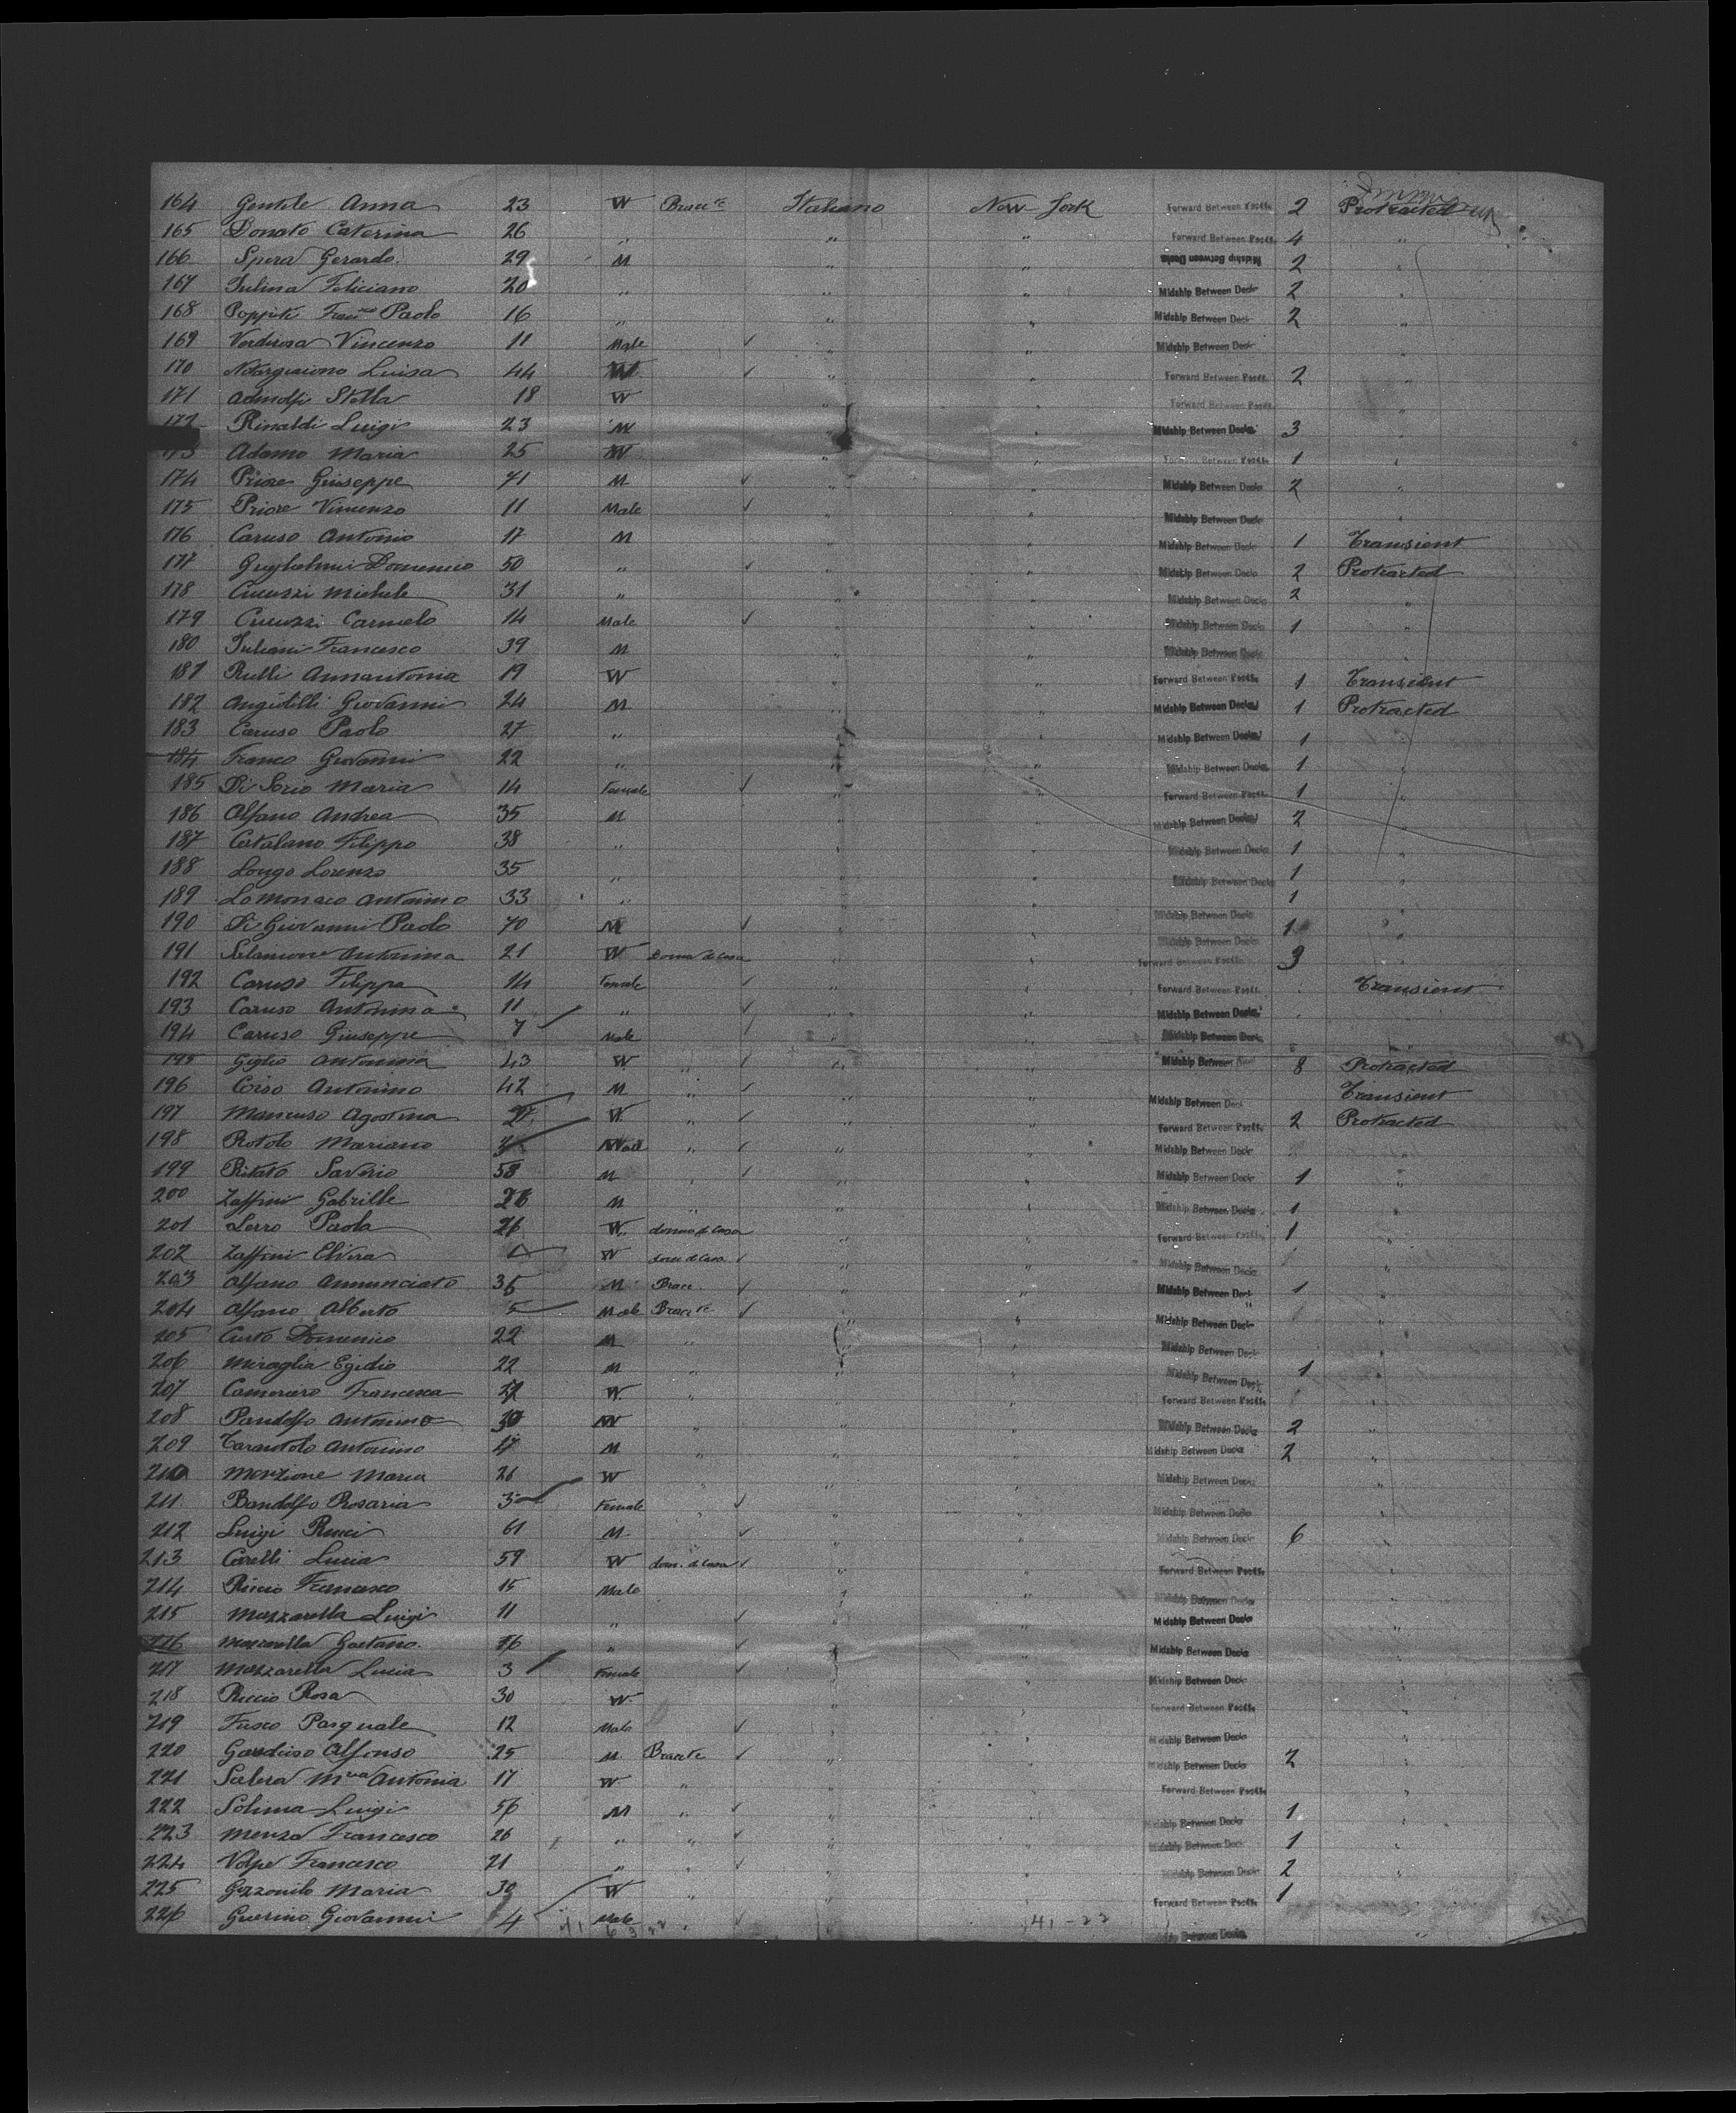 164 Gentile Anna 23 W Bracte Italiano New York Forward Between Poop 2 Protracted
165 Donato Caterina 26 " " " Forward Between 4 "
166 Spera Gerardo 29 M " " Midship Between Decks 2 "
167 Feliciano 20 " " " Midship Between Deck 2 "
168 Paolo 16 " " " Midship Between Deck 2 "
169 Verdirosa Vincenzo 11 Male ✓ " " Midship Between Deck
170 Luisa 44 ✓ " " Forward Between 2 "
171 Adinolfi Stella 18 W " " Forward Between "
172 Rinaldi Luigi 23 M " " Midship Between Decks 3 "
Adamo Maria 25 W " " Between 1 "
174 Priore Giuseppe 41 M ✓ " " Midship Between Decks 2 "
175 Priore Vincenzo 11 Male ✓ " " Midship Between Deck "
176 Caruso Antonio 17 M " " Midship Between Deck 1 Transient
177 Guglielmi Domenico 50 " ✓ " " Midship Between Deck 2 Protracted
178 Michele 31 " " " Midship Between Decks 2 "
179 Carmelo 14 Male ✓ " " Midship Between Decks 1 "
180 Juliani Francesco 39 M " " Midship Between Deck
181 Rulli Annantonia 19 W " " Forward Between 1 Transient
182 Angiolilli Giovanni 24 M " " Midship Between Decks 1 Protracted
183 Caruso Paolo 27 " " " Midship Between Decks 1 "
184 Franco Giovanni 22 " " " Midship Between Decks 1 "
185 Di Maria 14 Female ✓ " " Forward Between 1 "
186 Alfano Andrea 35 M " " Midship Between Decks 2 "
187 Catalano Filippo 38 " " " Midship Between Decks 1 "
188 Longo Lorenzo 35 " " " Midship Between Decks 1 "
189 Lo Monaco Antonino 33 " " " Midship Between Deck 1 "
190 Di Giovanni Paolo 70 M ✓ " " Midship Between Deck 1 "
191 Antonina 21 W Donna de Casa " " Forward Between 3 "
192 Caruso Filippa 14 Female ✓ " " Forward Between Transient
193 Caruso Antonina 11 " ✓ " " Midship Between Decks "
194 Caruso Giuseppe 7 Male ✓ " " Midship Between Deck "
195 Giglio Antonina 43 W " ✓ " " Midship Between 8 Protracted
196 Corso Antonino 42 M " ✓ " " Midship Between Deck Transient
197 Mancuso Agostina W " ✓ " " Forward Between 2 Protracted
198 Rotolo Mariano " ✓ " " Midship Between Deck "
199 Ritato Saverio 58 M " ✓ " " Midship Between Deck 1 "
200 Zaffini Gabrielle M " " " Midship Between Decks 1 "
201 Lerro Paola 26 W donna de Casa " " Forward Between 1 "
202 Zaffini Elvira W ✓ " " Midship Between Deck "
203 Alfano Annunciato 35 M Brace ✓ " " Midship Between Deck 1 "
204 Alfano Alberto 5 Male Bracte ✓ " " Midship Between Deck "
205 Curto Domenico 22 M " " " Midship Between Deck "
206 Miraglia Egidio 22 M " " " Midship Between Deck 1 "
207 Francesca W " " " Forward Between "
208 Pandolfo Antonino 30 " " " Midship Between Decks 2 "
209 Tarantolo Antonino M " " " Midship Between Decks 2 "
210 Manzione Maria 26 W " " Midship Between Decks "
211 Bandolfo Rosaria 3 Female ✓ " " Midship Between Decks "
212 Luigi Ricci 61 M ✓ " " Midship Between Deck 6 "
213 Corelli Lucia 59 W don. de Casa ✓ " " Forward Between "
214 Riccio Francesco 15 Male " " Midship Between Deck "
215 Mazzarella Luigi 11 " ✓ " " Midship Between Decks "
Mazzarella Gaetano " ✓ " " Midship Between Decks "
217 Mazzarella Lucia 3 Female ✓ " " Midship Between Deck "
218 Riccio Rosa 30 W " " Forward Between "
219 Fusco Pasquale 12 Male ✓ " " Midship Between Deck "
220 Alfonso 25 M Bracte ✓ " " Midship Between Decks 2 "
221 Antonia 17 W " " " Forward Between "
222 Solima Luigi 56 M " ✓ " " Midship Between Decks 1 "
223 Menza Francesco 26 " " ✓ " " Midship Between Deck 1 "
224 Volpe Francesco 21 " " ✓ " " Midship Between Deck 2 "
225 Maria 30 W " " " Forward Between 1
226 Guerino Giovanni 4 Male " ✓ " 41-22 Between Decks "